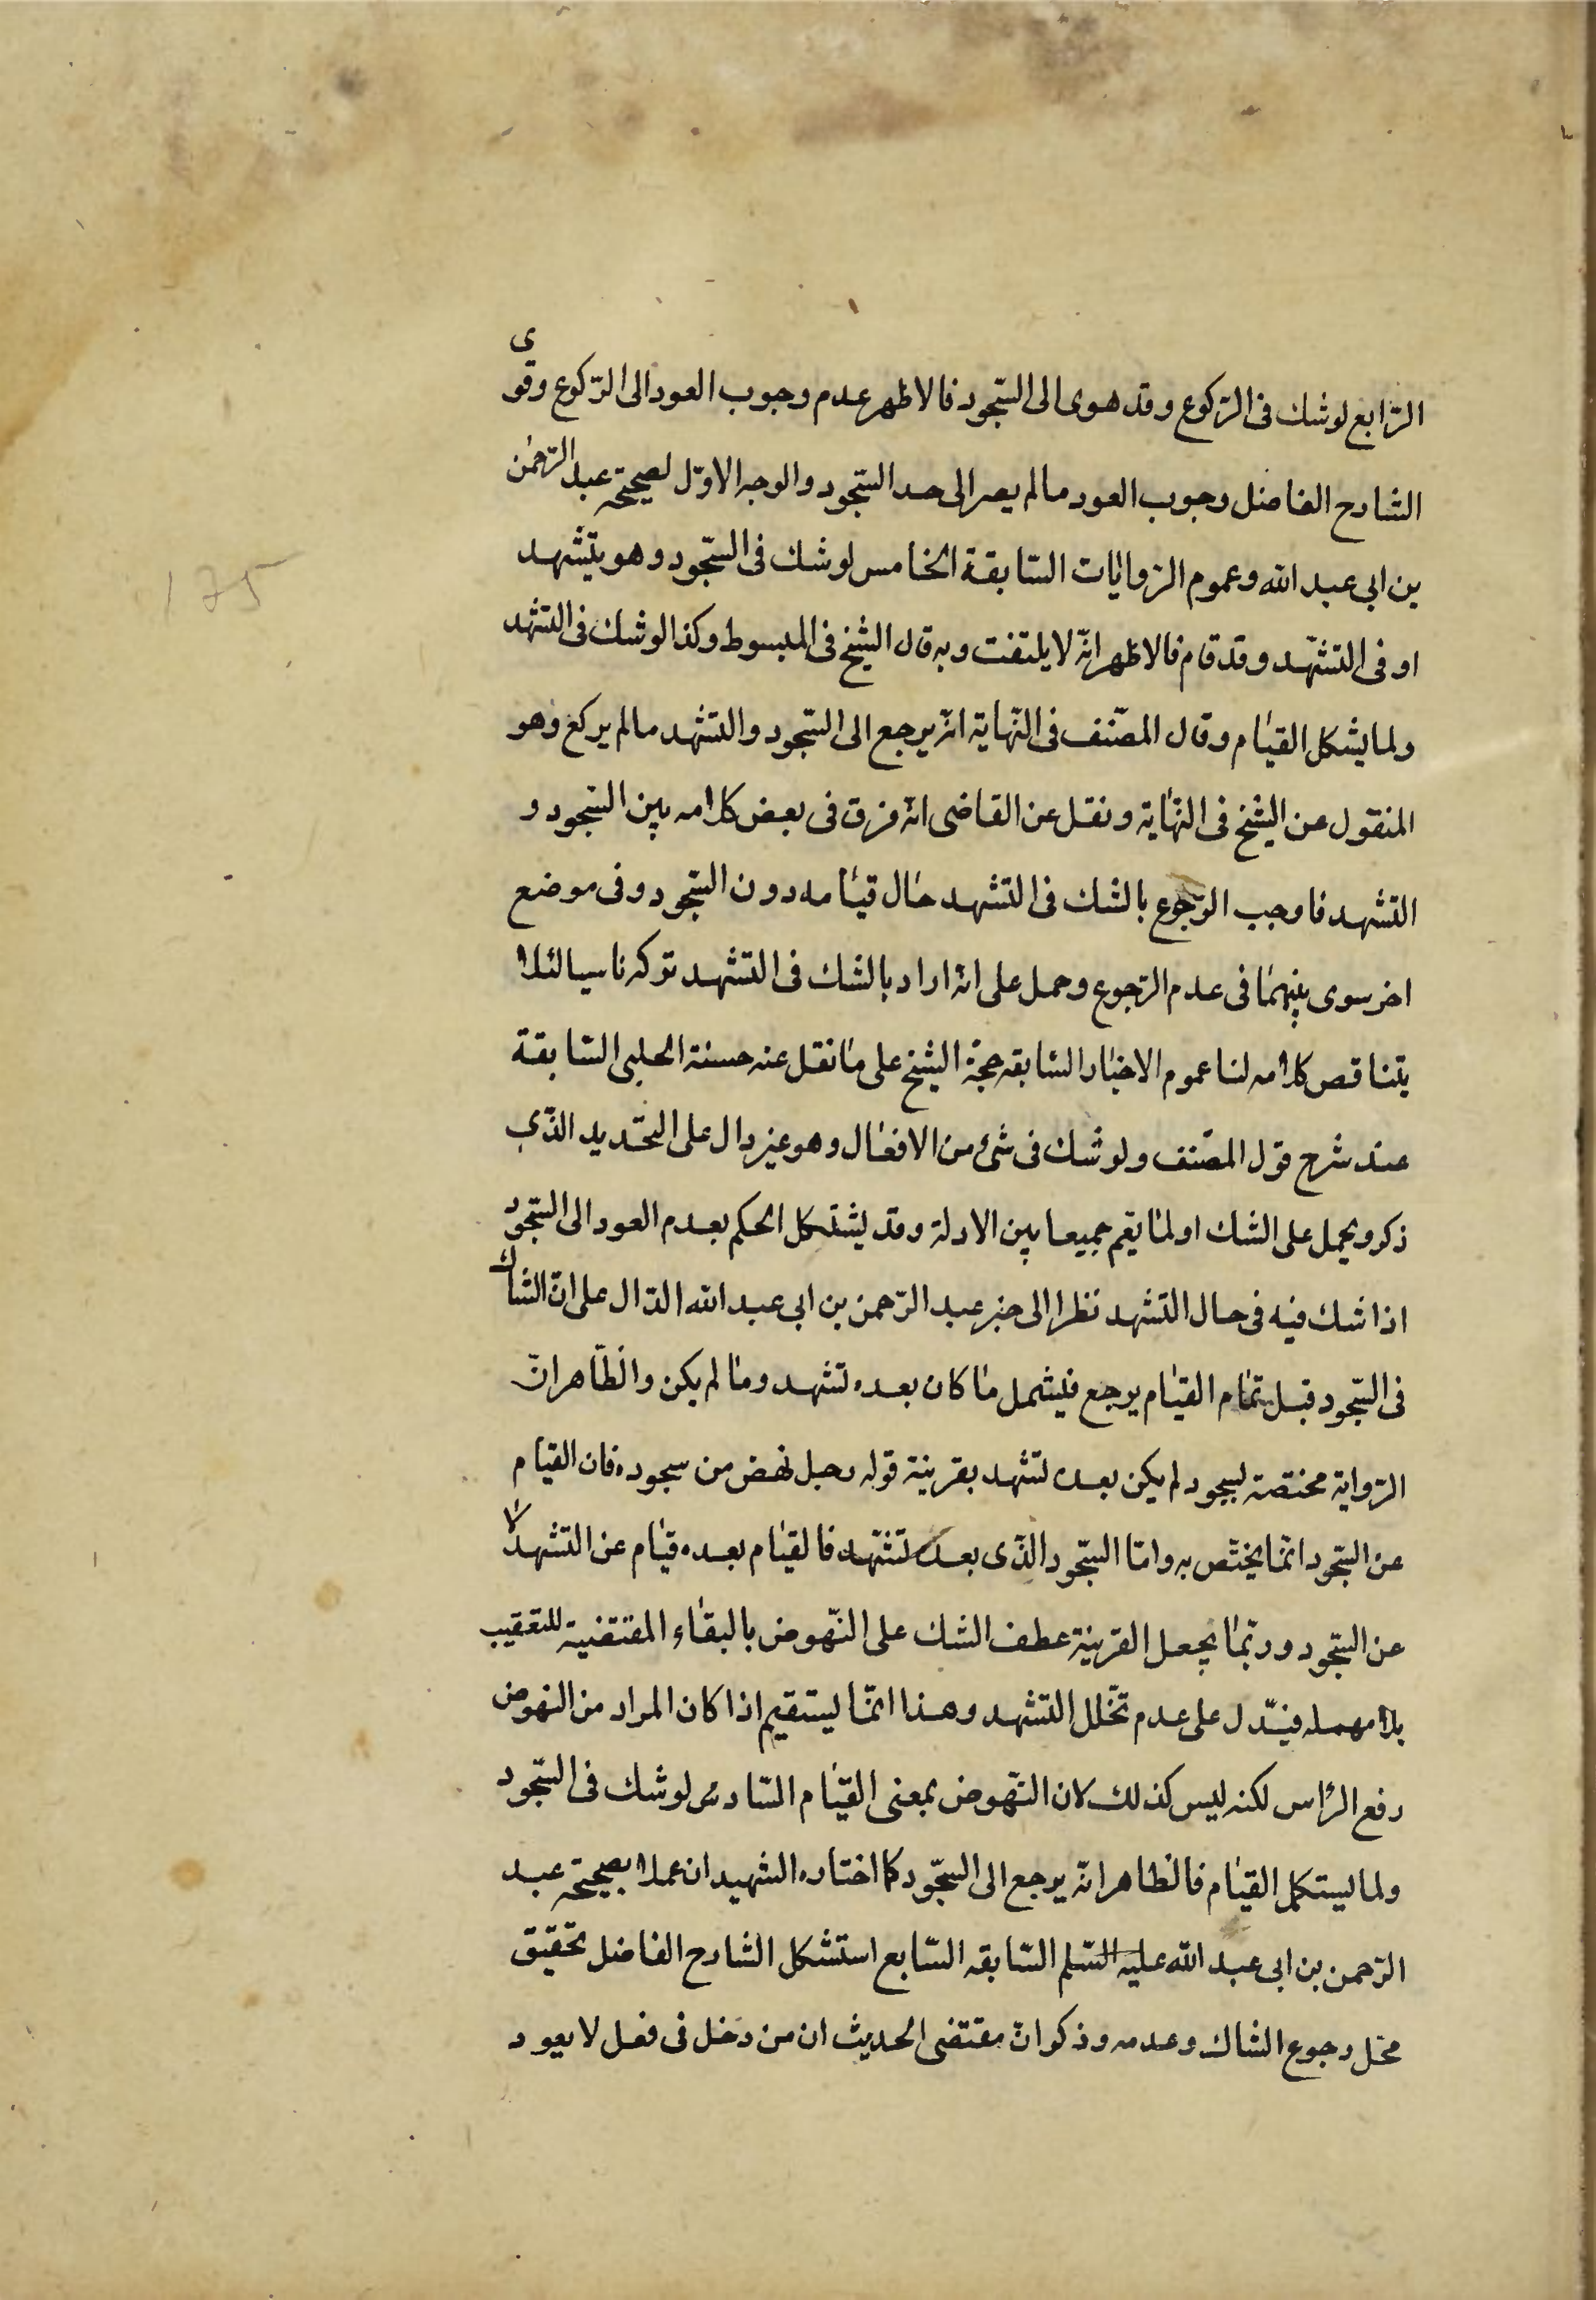 الرّابع لو شك فى الرّكوع وقد هوى الى السّجود فالاظهر عدم وجوب العود الى الرّكوع وقوى
الشارح الفاضل وجوب العود ما لم يصر الى حد السّجود والوجه الاوّل لصحيحة عبد الرّحمٰن
بن ابى عبد الله وعموم الرّوايٰات السّابقة الخامس لو شك فى السّجود وهو يتشهد
او فى التشهّد وقد قام فالاظهر انّه لا يلتفت وبه قال الشّيخ فى المبسوط وكذا لو شك فى التشهد
ولما يشكل القيٰام وقال المصّنف فى النّهاية انّه يرجع الى السّجود والتشهد ما لم يركع وهو
المنقول عن الشّيخ فى النهٰاية ونقل عن القاضى انّه فرق فى بعض كلامه بين السّجود و
التشهد فاوجب الرّجوع بالشك فى التشهد حٰال قيٰامه دون السّجود وفى موضع
اخر سوى بينهمٰا فى عدم الرّجوع وحمل على انّه اراد بالشك فى التشهد تركه ناسيا لئلا
يتناقص كلامه لنا عموم الاخبٰار السّابقه حجّة الشّيخ على مٰا نقل عنه حسنة الحلبى السّابقة
عند شرح قول المصّنف ولو شك فى شئ من الافعٰال وهو غير دال على التحّديد الذّى
ذكر ويحمل على الشك اولمٰا يقم جميعا بين الادلة وقد يشتكل الحكم بعدم العود الى السّجود
اذا شك فيه فى حال التشهد نظرا الى خبر عبد الرّحمن بن ابى عبد الله الدّال على انّ الشاك
فى السّجود قبل تمٰام القيٰام يرجع فيشمل مٰا كان بعده تشهد ومٰا لم يكن والظّاهر انّ
الرّواية مختصة لسجود لم يكن بعده تشهد بقرينة قوله رجل نهض من سجوده فان القيٰام
عن السّجود انمّٰا يختّص به وامّا السّجود الذّى بعده تشّهد فالقيٰام بعده قيٰام عن التشهد لا
عن السّجود وربّمٰا يجعل القرينة عطف الشك على النّهوض بالبفٰاء المقتضية للتعقيب
بلا مهمله فيّدل على عدم تخّلل التشهد وهذا انمّٰا يستقيم اذا كان المراد من النهوض
رفع الرّاس لكنه ليس كذلك لان النّهوض بمعنى القيٰام السّادس لو شك فى السّجود
ولما يستكمل القيٰام فالظاهر انّه يرجع الى السّجود كما اختاره الشهيدان عملا بصحيحة عبد
الرّحمن بن ابى عبد الله عليه السّلم السّابقه السّابع استشكل الشارح الفاضل تحقيق
محّل رجوع الشاك وعدمه وذكر انّ مقتضى الحديث ان من دخل فى فعل لا يعود
175